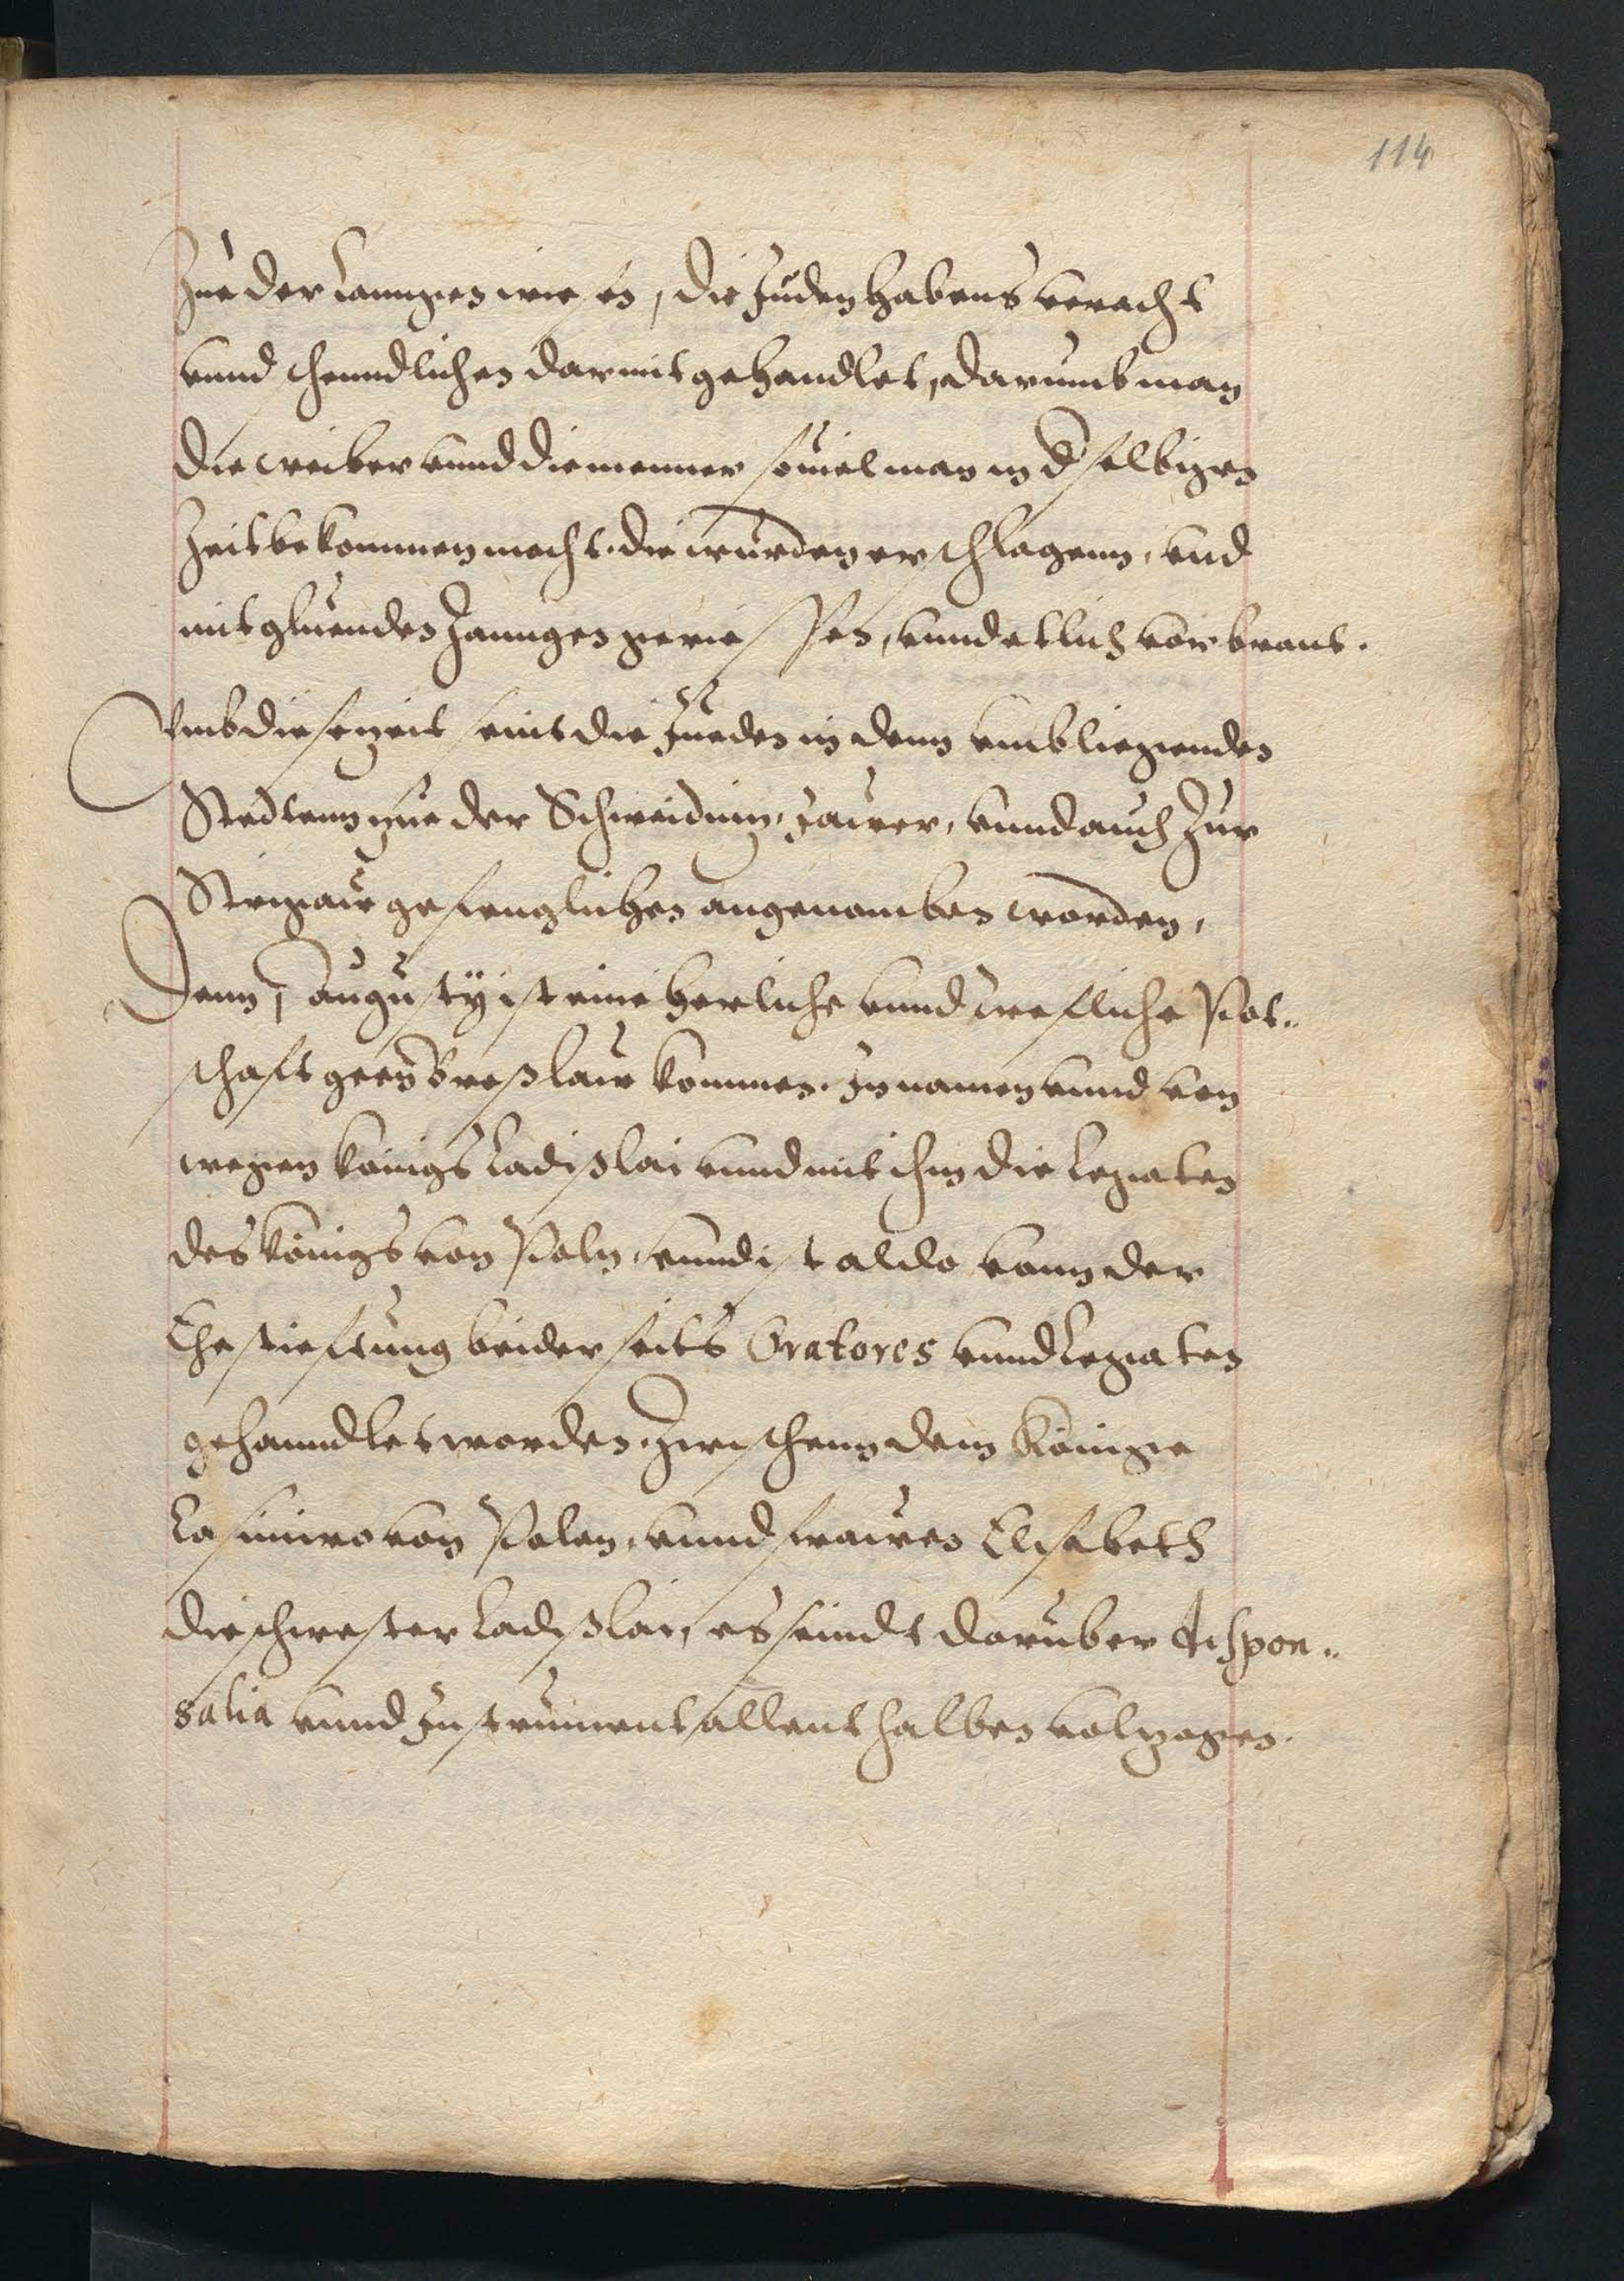 114
Zue der Lanngen wie es, die Juden habens veracht
vnnd schenndlichen darmit gehandlet, darumb man
die weiber vnnd die menner souiel man in d selbigen
Zeit bekommen mocht. die würden erschlagenn, vnd
mit gluenden Zanngen gerissen, vnnd etlich vorbrant.
Vmb diese zeit seint die Jueden in denn vmbliegenden
Stedtenn zue der Schweidnitz, Jauer, vnnd auch Zur
Strigaw gefenglichen angenomben worden,
Denn 7 Augusty ist eine herliche vnnd trefliche Pot„
schaft geen Breßlaw kommen. In namen vnnd von
wegen königs Ladißlai vnnd mit ihm die Legaten
des königs von Poln, vnnd ist aldo vonn der
Ehestieftung beiderseits Oratores vnnd Legaten
gehanndlet worden. Zwischenn dem Könige
Casimiro von Polen, vnnd frawen Elisabeth
die schwester Ladißlai, es seindt daruber Respon„
salia vnnd Instrument allenthalben volzogen.